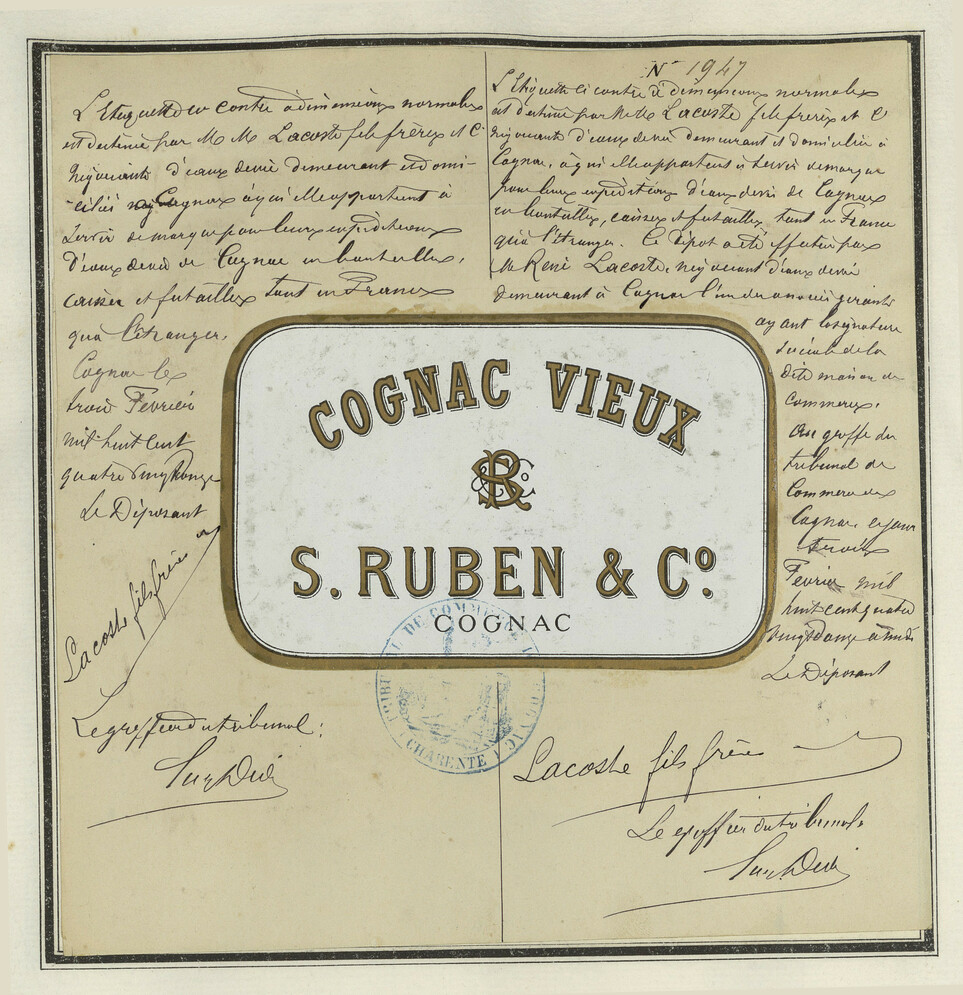 L'Etiquette ci contre à dimensions normales
est destinée par M M Lacoste fils frères et Cie
négociants d'eaux de vie demeurant et domi-
-ciliés Cognac à qui elle appartient à
servir de marque pour leurs expéditions
d'eaux de vie de Cognac en bouteilles,
caisses et futailles tant en France
qu'à l'étranger.
Cognac le
trois Février
mil huit cent
quatre vingt onze
Le Déposant
Lacoste fils frères
Le greffier du tribunal:
N° 1947
L'Etiquette ci contre à dimensions normales
est destinée par M.M. Lacoste fils frères et Cie
négociants d'eaux de vie demeurant et domiciliés à
Cognac, à qui elle appartient à servir de marque
pour leurs expéditions d'eaux de vie de Cognac
en bouteilles, caisses et futailles, tant en France
qu'à l'étranger. Ce dépôt a été effectué par
Mr René Lacoste, négociant d'eaux de vie
demeurant à Cognac l'un des associés gérants
ayant la signature
sociale de la
dite maison de
commerce.
Au greffe du
tribunal de
Commerce de
Cognac, ce jour
trois
Février mil
huit cent quatre
vingt onze
Le Déposant
Lacoste fils frères
Le greffier du tribunal
COGNAC VIEUX
S. RUBEN & Co.
COGNAC
TRIBUNAL DE COMMERCE DE COGNAC
(CHARENTE)